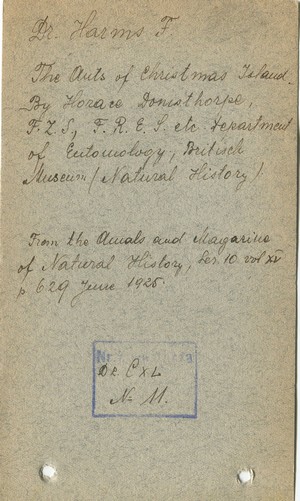 Dr. Harms F.
The Ants of Christmas Island.
By Horace Donisthorpe,
F.Z.S, F.R.E.S. etc Department
of Entomology, Britisch
Museum (Natural History)
From the Annals and Magazine
of Natural History, Ser. 10 vol XV
p 629 June 1925.
Nr.
Dr. CXL
N- 11.